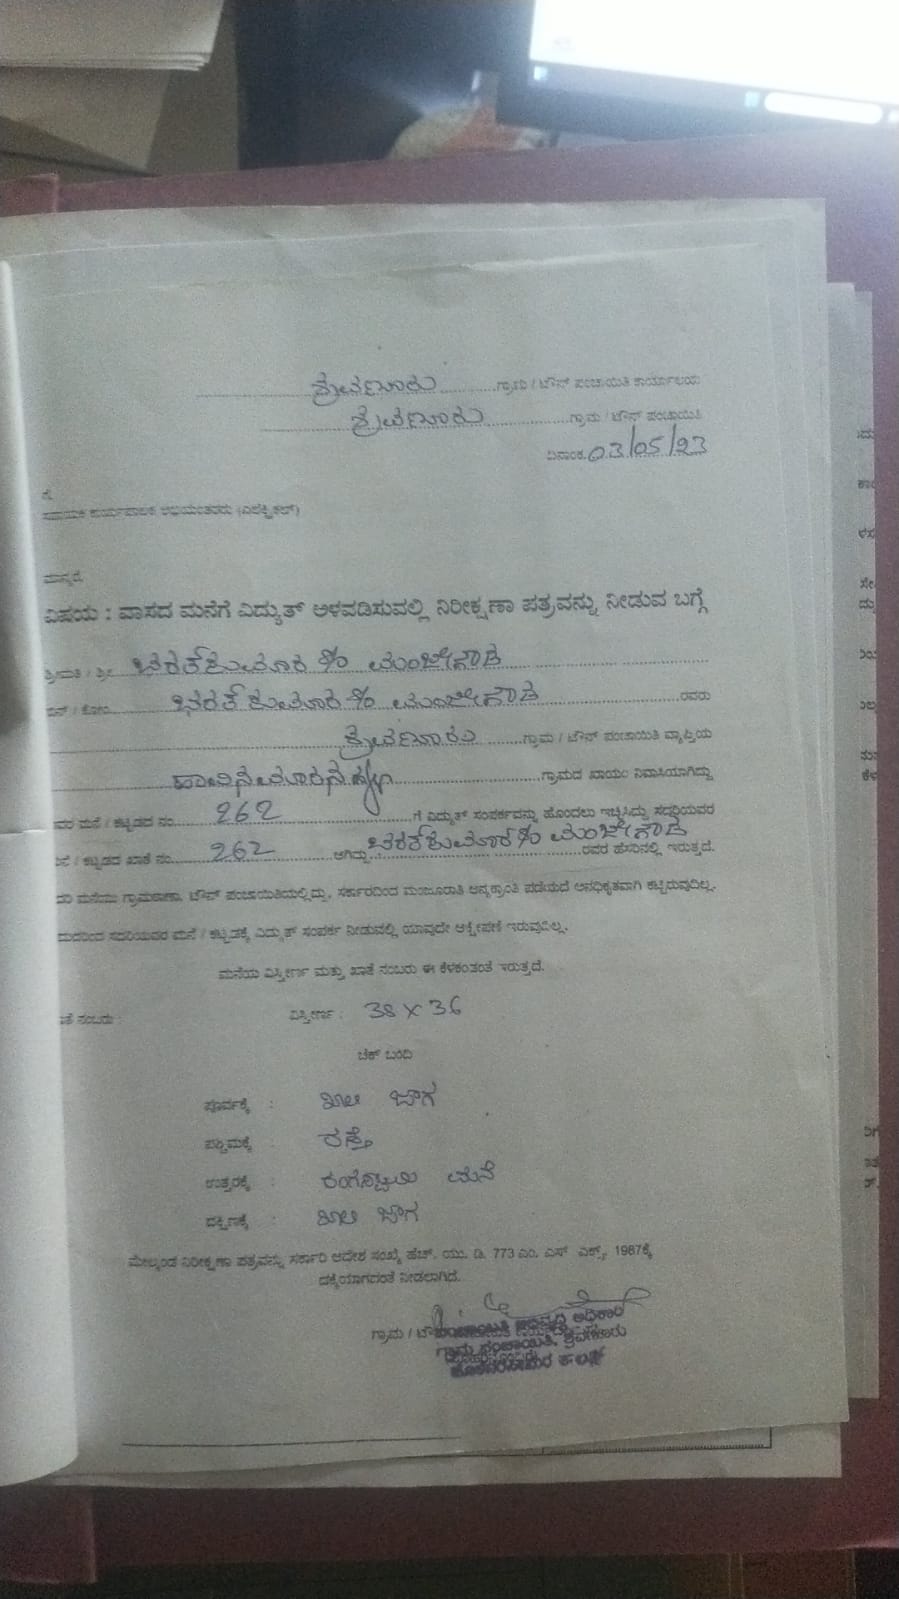 ಶ್ರವಣೂರು ಗ್ರಾಮ / ಟೌನ್ ಪಂಚಾಯಿತಿ ಕಾರ್ಯಾಲಯ
ಶ್ರವಣೂರು ಗ್ರಾಮ / ಟೌನ್ ಪಂಚಾಯಿತಿ
ದಿನಾಂಕ 03/05/23
ಗೆ,
ಸಹಾಯಕ ಕಾರ್ಯಪಾಲಕ ಅಭಿಯಂತರರು (ಎಲೆಕ್ಟ್ರಿಕಲ್)
ಮಾನ್ಯರೆ,
ವಿಷಯ : ವಾಸದ ಮನೆಗೆ ವಿದ್ಯುತ್ ಅಳವಡಿಸುವಲ್ಲಿ ನಿರೀಕ್ಷಣಾ ಪತ್ರವನ್ನು ನೀಡುವ ಬಗ್ಗೆ
ಶ್ರೀಮತಿ / ಶ್ರೀ ಭರತ್ ಕುಮಾರ S/o ಮಂಜೇಗೌಡ
ಬಿನ್ / ಕೋಂ ಭರತ್ ಕುಮಾರ S/o ಮಂಜೇಗೌಡ ರವರು
ಶ್ರವಣೂರು ಗ್ರಾಮ / ಟೌನ್ ಪಂಚಾಯಿತಿ ವ್ಯಾಪ್ತಿಯ
ಗ್ರಾಮದ ಖಾಯಂ ನಿವಾಸಿಯಾಗಿದ್ದು
ವರ ಮನೆ / ಕಟ್ಟಡದ ನಂ. 262 ಗೆ ವಿದ್ಯುತ್ ಸಂಪರ್ಕವನ್ನು ಹೊಂದಲು ಇಚ್ಚಿಸಿದ್ದು ಸದರಿಯವರ
ನೆ / ಕಟ್ಟಡದ ಖಾತೆ ನಂ. 262 ಆಗಿದ್ದು ಭರತ್ ಕುಮಾರ್ S/o ಮಂಜೇಗೌಡ ರವರ ಹೆಸರಿನಲ್ಲಿ ಇರುತ್ತದೆ.
ದರಿ ಮನೆಯು ಗ್ರಾಮಠಾಣಾ, ಟೌನ್ ಪಂಚಾಯಿತಿಯಲ್ಲಿದ್ದು, ಸರ್ಕಾರದಿಂದ ಮಂಜೂರಾತಿ ಅನ್ಯಕ್ರಾಂತಿ ಪಡೆಯದೆ ಅನಧಿಕೃತವಾಗಿ ಕಟ್ಟಿರುವುದಿಲ್ಲ.
ದುದರಿಂದ ಸದರಿಯವರ ಮನೆ / ಕಟ್ಟಡಕ್ಕೆ ವಿದ್ಯುತ್ ಸಂಪರ್ಕ ನೀಡುವಲ್ಲಿ ಯಾವುದೇ ಆಕ್ಷೇಪಣೆ ಇರುವುದಿಲ್ಲ.
ಮನೆಯ ವಿಸ್ತೀರ್ಣ ಮತ್ತು ಖಾತೆ ನಂಬರು ಈ ಕೆಳಕಂಡಂತೆ ಇರುತ್ತದೆ.
ತೆ ನಂಬರು : ವಿಸ್ತೀರ್ಣ : 38 X 36
ಚೆಕ್ ಬಂದಿ
ಪೂರ್ವಕ್ಕೆ : ಖಾಲಿ ಜಾಗ
ಪಶ್ಚಿಮಕ್ಕೆ : ರಸ್ತೆ
ಉತ್ತರಕ್ಕೆ : ಮನೆ
ದಕ್ಷಿಣಕ್ಕೆ : ಖಾಲಿ ಜಾಗ
ಮೇಲ್ಕಂಡ ನಿರೀಕ್ಷಣಾ ಪತ್ರವನ್ನು ಸರ್ಕಾರಿ ಆದೇಶ ಸಂಖ್ಯೆ ಹೆಚ್. ಯು. ಡಿ. 773 ಎಂ. ಎಸ್ ಎಕ್ಸ್, 1987ಕ್ಕೆ
ದಕ್ಕೆಯಾಗದಂತೆ ನೀಡಲಾಗಿದೆ.
ಗ್ರಾಮ / ಟೌ
ಪಂಚಾಯಿತಿ ಅಭಿವೃದ್ಧಿ ಅಧಿಕಾರಿ
ಗ್ರಾಮ ಪಂಚಾಯಿತಿ, ಶ್ರವಣೂರು